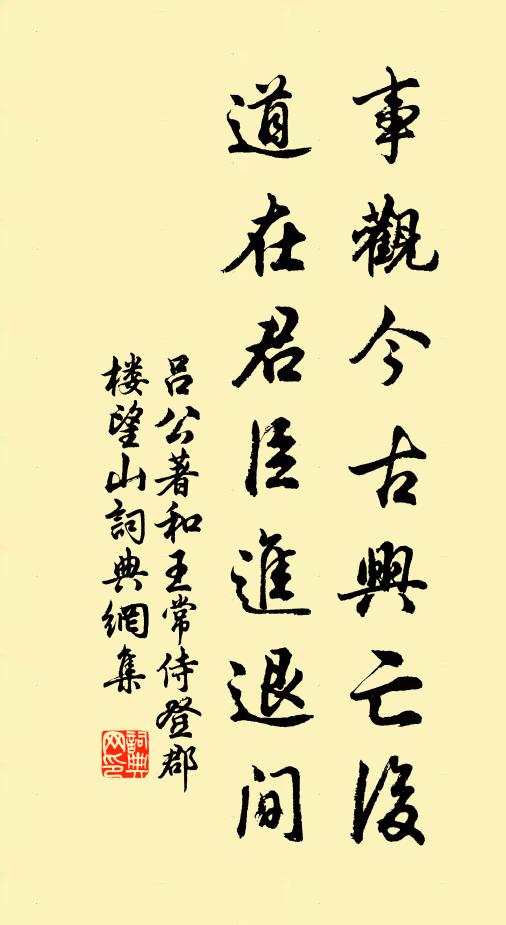 事觀今古興亡後
道在君臣進退間
呂公著和王常侍登郡
楼望山詞典網集
詞典
网印